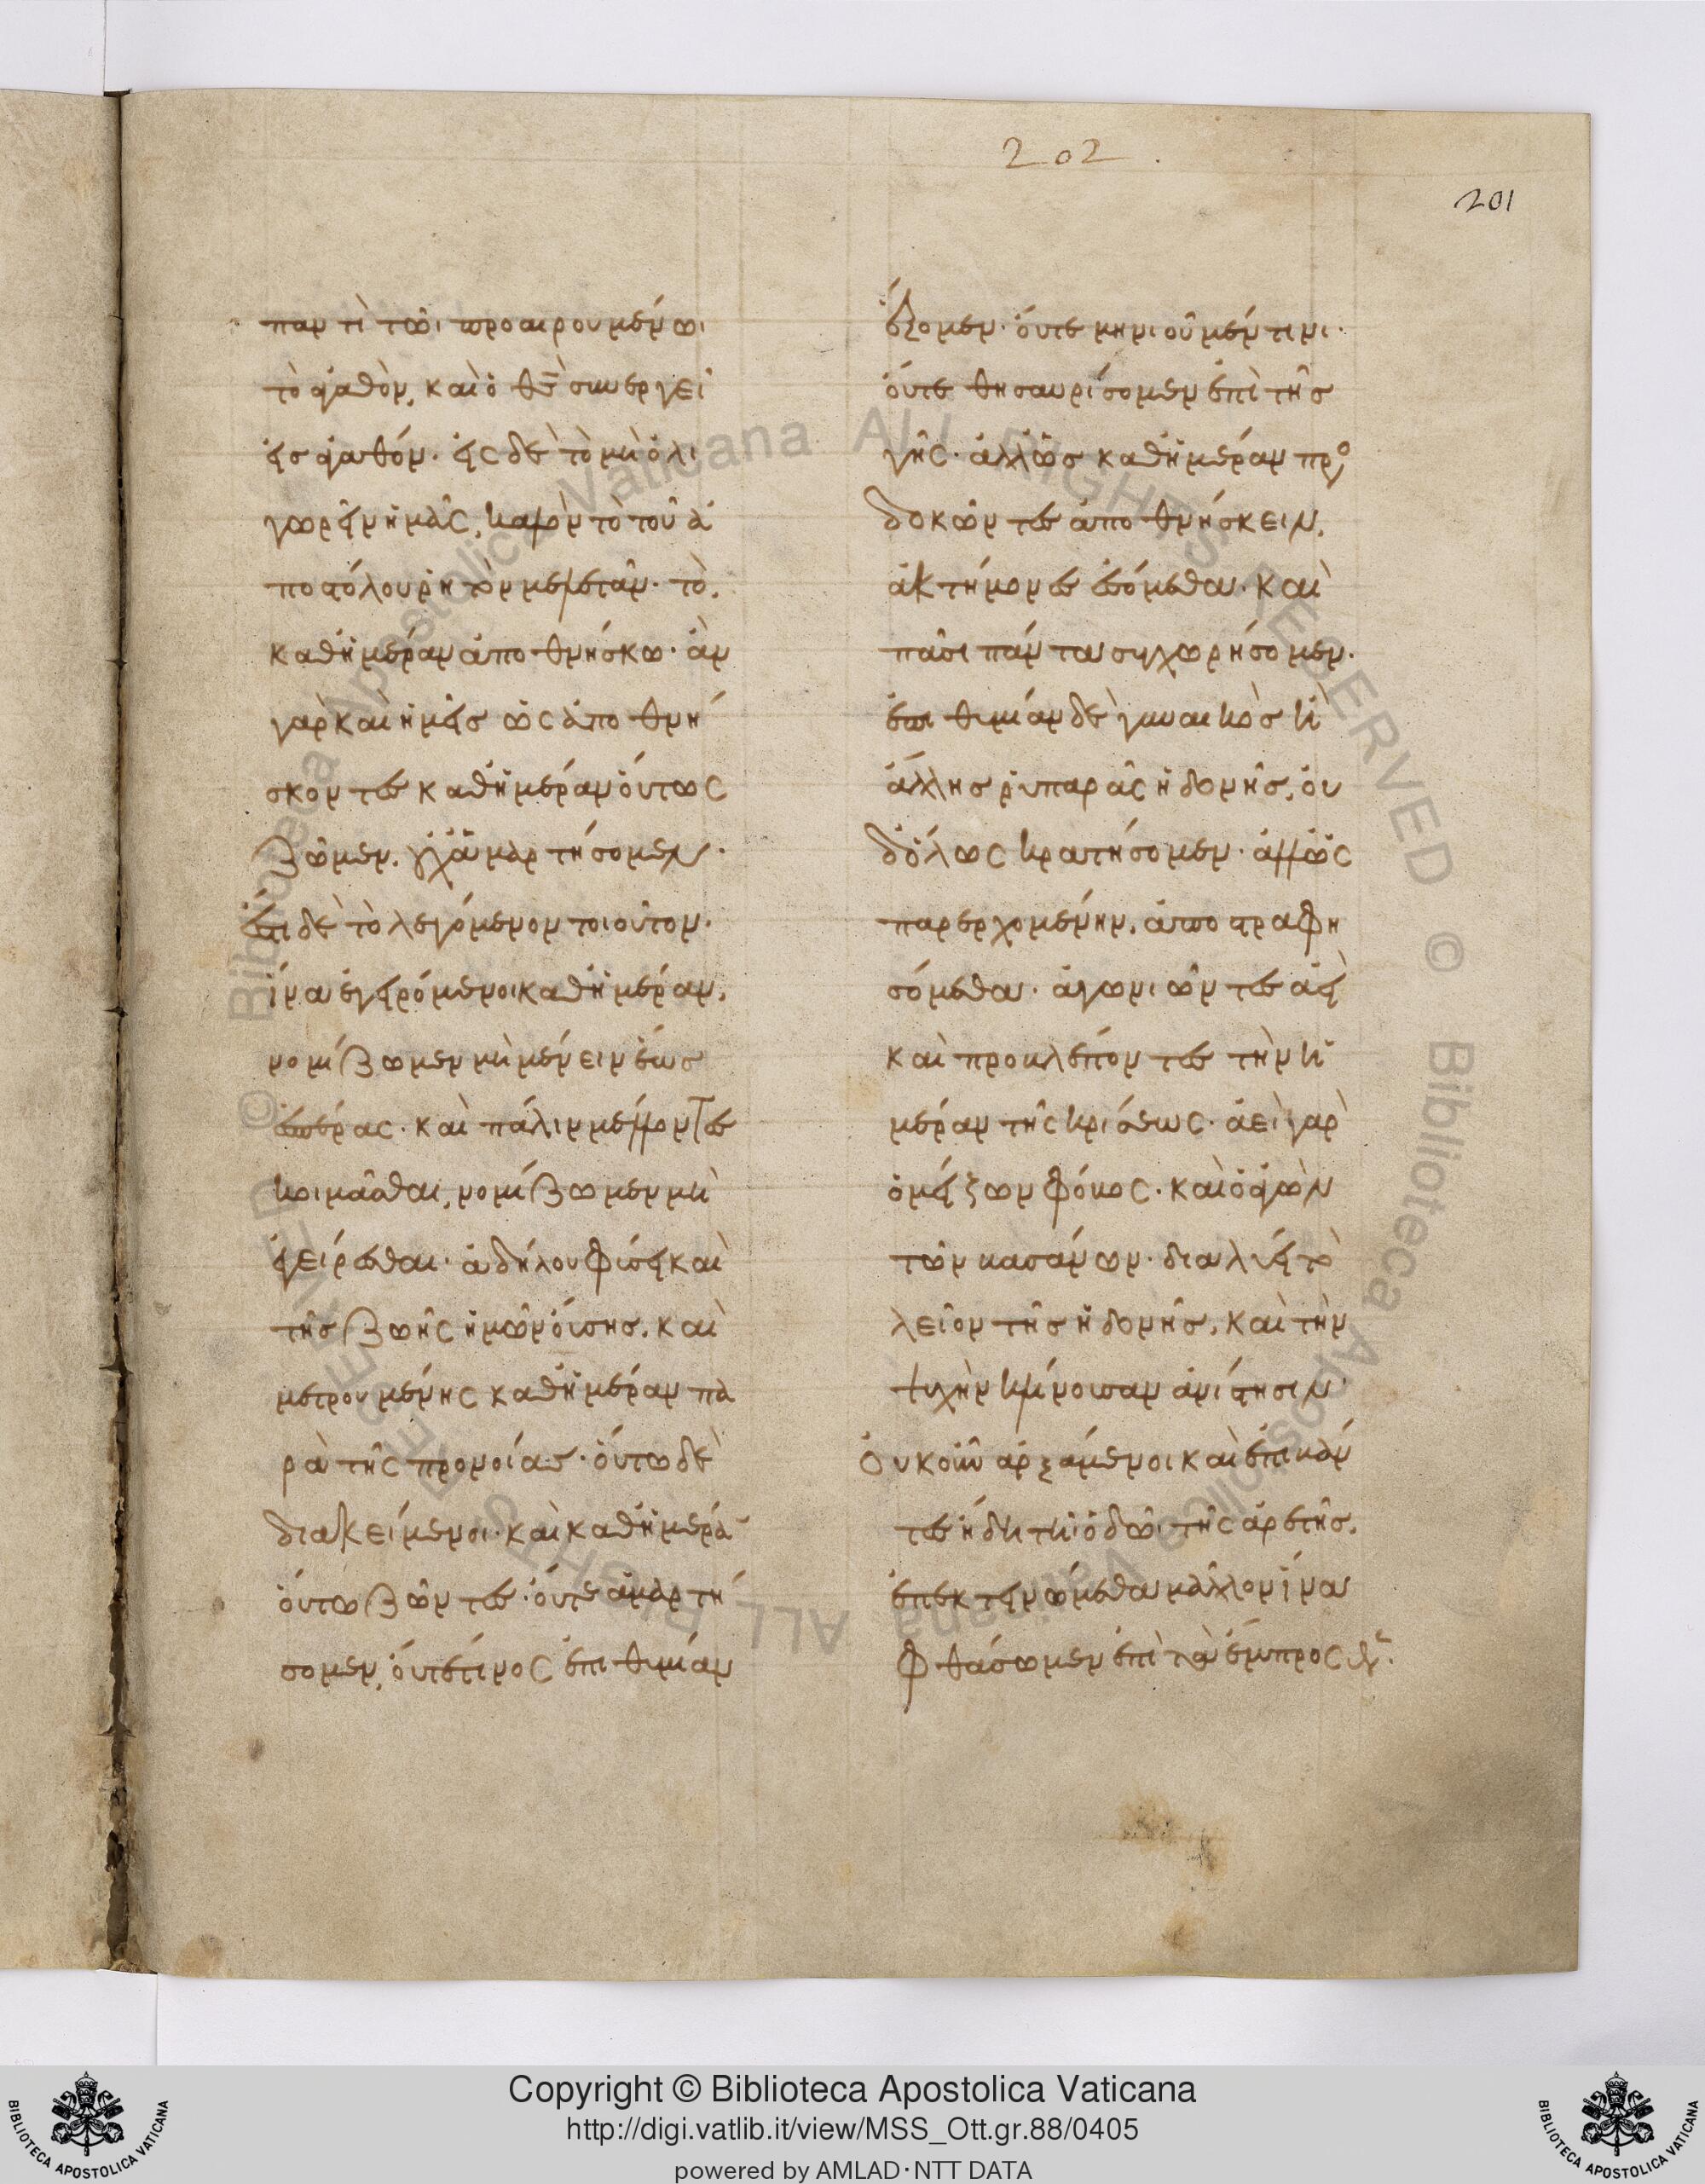 202.
201
παντὶ τῶι προαιρουμένωι
τὸ ἀγαθὸν, καὶ ὁ θς συνεργεῖ
εἰς ἀγαθόν. εἰς δὲ τὸ μὴ ὀλι
γωρεῖν ἡμᾶς, καλὸν τὸ τοῦ ἀ
ποστόλου ῥητὸν μελετᾶν. τὸ,
καθ ἡμέραν ἀποθνήσκω. ἂν
γὰρ καὶ ἡμεῖς ὡς ἀποθνή
σκοντες καθ ἡμέραν ὅυτως
ζῶμεν, οὐχ ἁμαρτήσομεν.
ἔστι δὲ τὸ λεγόμενον τοιοῦτον.
ἵνα ἐγειρόμενοι καθ ἡμέραν,
νομίζωμεν μὴ μένειν ἕως
ἑσπέρας. καὶ πάλιν μέλλοντες
κοιμᾶσθαι, νομίζωμεν μὴ
ἐγείρεσθαι. ἀδήλου φύσει καὶ
τῆς ζωῆς ἡμῶν ὄυσης, καὶ
μετρουμένης καθ ἡμέραν πα
ρὰ τῆς προνοίας. ὅυτω δὲ
διακείμενοι. καὶ καθ ἡμέρα
ὅυτω ζῶντες. ὄυτε ἁμαρτή
σομεν, ὄυτε τινος ἐπιθυμίαν
ἕξομεν. ὄυτε μηνιοῦμέν τινι.
ὄυτε θησαυρίσομεν ἐπὶ τῆς
γῆς. ἀλλ ὡς καθ ἡμέραν προσ
δοκῶντες ἀποθνήσκειν,
ἀκτήμονες ἐσόμεθα. καὶ
πᾶσι πάντα συγχωρήσομεν.
ἐπιθυμίαν δὲ γυναικὸς ἢ
ἄλλης ῥυπαρᾶς ἡδονῆς, ὀυ
δ ὅλως κρατήσομεν. ἀλλ ὡς
παρερχομένην, ἀποστραφη
σόμεθα. ἀγωνιῶντες ἀεὶ
καὶ προβλέποντες τὴν ἡ
μέραν τῆς κρίσεως. ἀεὶ γὰρ
ὁ μείζων φόβος. καὶ ὁ ἀγὼν
τῶν βασάνων. διαλύει τὸ
λεῖον τῆς ἡδονῆς, καὶ τὴν
ψυχὴν κλίνουσαν ἀνίστησιν.
Ὀυκοῦν ἀρξάμενοι καὶ ἐπιβάν
τες ἤδη τῆ ὁδῶι τῆς ἀρετῆς,
ἐπεκτεινώμεθα μᾶλλον ἵνα
φθάσωμεν ἐπὶ τὰ ἔμπροσθεν.
Copyright © Biblioteca Apostolica Vaticana
http://digi.vatlib.it/view/MSS_Ott.gr.88/0405
powered by AMLAD·NTT DATA
BIBLIOTECA APOSTOLICA VATICANA
BIBLIOTECA APOSTOLICA VATICANA
© Biblioteca Apostolica Vaticana ALL RIGHTS RESERVED
© Biblioteca Apostolica Vaticana ALL RIGHTS RESERVED